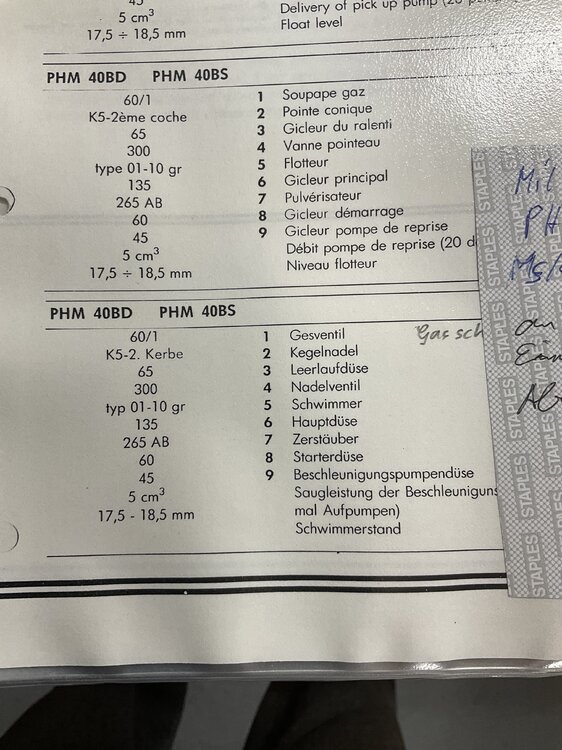 45
Delivery of pick up pump (20
5 cm³
Float level
17,5 ÷ 18,5 mm
PHM 40BD PHM 40BS
60/1 1 Soupape gaz
K5-2ème coche 2 Pointe conique
65 3 Gicleur du ralenti
300 4 Vanne pointeau
type 01-10 gr 5 Flotteur
135 6 Gicleur principal
265 AB 7 Pulvérisateur
60 8 Gicleur démarrage
45 9 Gicleur pompe de reprise
5 cm³ Débit pompe de reprise (20 d
17,5 ÷ 18,5 mm Niveau flotteur
PHM 40BD PHM 40BS
60/1 1 Gesventil Gas sch
K5-2. Kerbe 2 Kegelnadel
65 3 Leerlaufdüse
300 4 Nadelventil
typ 01-10 gr 5 Schwimmer
135 6 Hauptdüse
265 AB 7 Zerstäuber
60 8 Starterdüse
45 9 Beschleunigungspumpendüse
5 cm³ Saugleistung der Beschleuniguns
mal Aufpumpen)
17,5 - 18,5 mm Schwimmerstand
STAPLES
STAPLES
STAPLES
STAPLES
STAPLES
STAPLES
Mit
PH